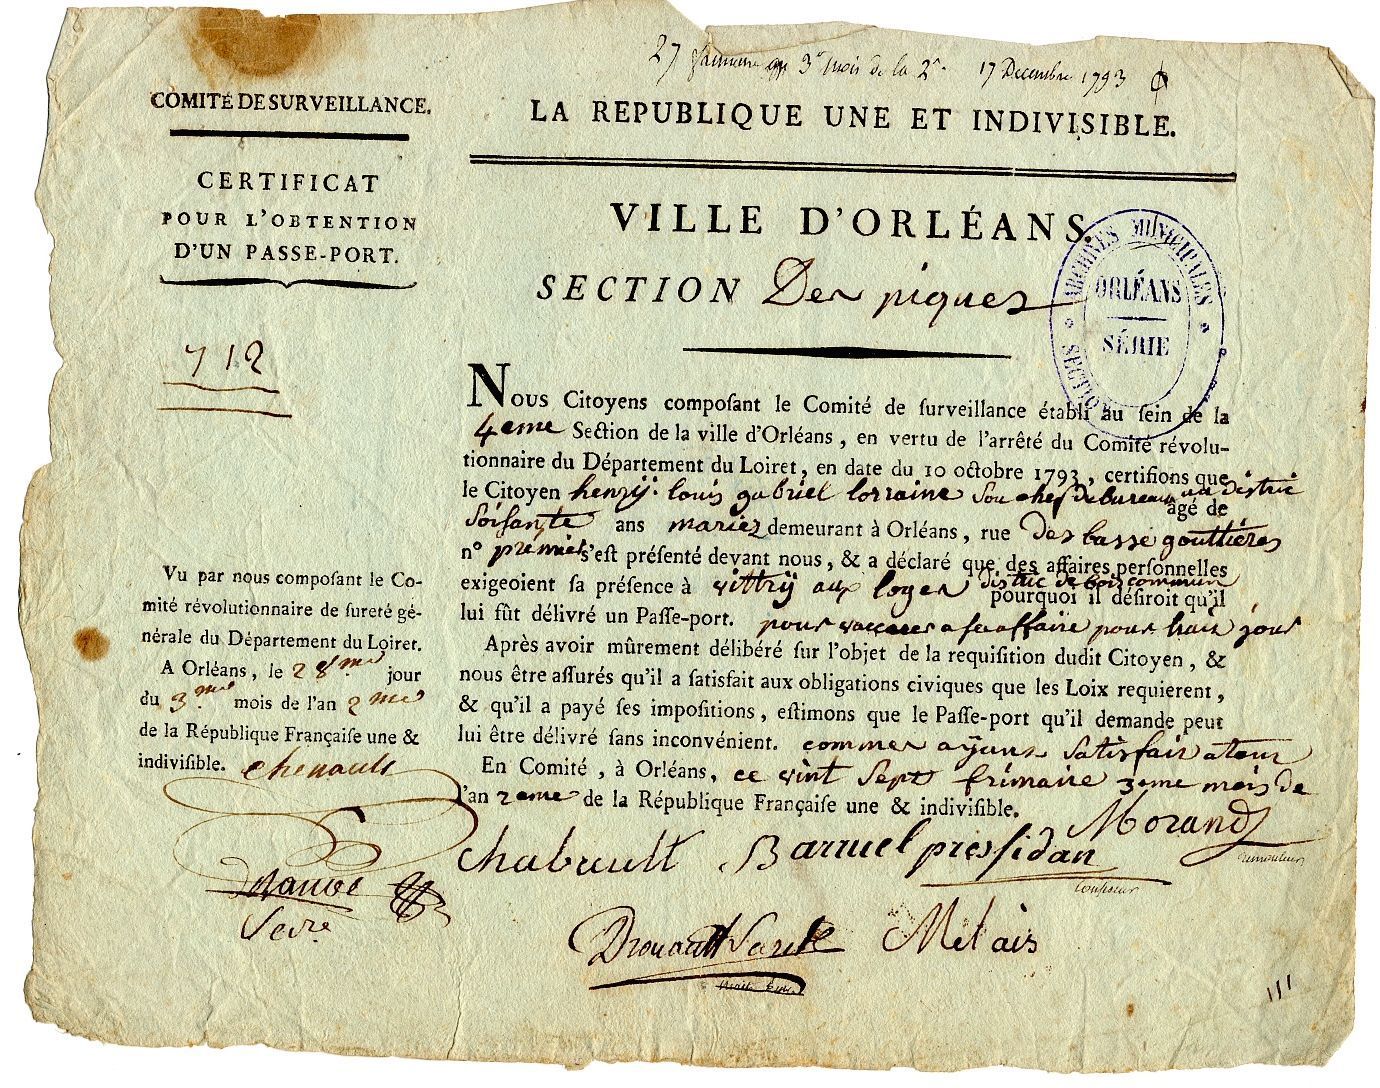 27 frimaire 3e mois de la 2e. 17 Decembre 1793
COMITÉ DE SURVEILLANCE.
CERTIFICAT
POUR L'OBTENTION
D'UN PASSE-PORT.
712
Vu par nous composant le Co-
mité révolutionnaire de sureté gé-
nérale du Département du Loiret.
A Orléans, le 28me jour
du 3me mois de l'an 2me
de la République Françaiſe une &
indivisible. chenault
LA REPUBLIQUE UNE ET INDIVISIBLE.
VILLE D'ORLÉANS.
SECTION Des piques
ARCHIVES MUNICIPALES
ORLÉANS
SÉRIE
SECTION
NOUS Citoyens compoſant le Comité de ſurveillance établi au ſein de la
4eme Section de la ville d'Orléans, en vertu de l'arrêté du Comité révolu-
tionnaire du Département du Loiret, en date du 10 octobre 1793, certifions que
le Citoyen henrÿ louis gabriel lorraine sou chef de bureau au distric
âgé de
soisante ans mariez demeurant à Orléans, rue des basse gouttieres
n° premier s'eſt préſenté devant nous, & a déclaré que des affaires perſonnelles
exigeoient ſa préſence à vittrÿ aux loges distric de bois commun
pourquoi il déſiroit qu'il
lui fût délivré un Paſſe-port. pour vaccarer a sa affaire pour huit jour
Après avoir mûrement délibéré ſur l'objet de la requiſition dudit Citoyen, &
nous être aſſurés qu'il a ſatisfait aux obligations civiques que les Loix requierent,
& qu'il a payé ſes impoſitions, eſtimons que le Paſſe-port qu'il demande peut
lui être délivré ſans inconvénient. commes ayans satisfait a tour
En Comité, à Orléans, ce vint sept frimaire 3eme mois de
l'an 2eme de la République Françaiſe une & indiviſible.
Morand
chabault Barruel presidan
Drouault Metais
III